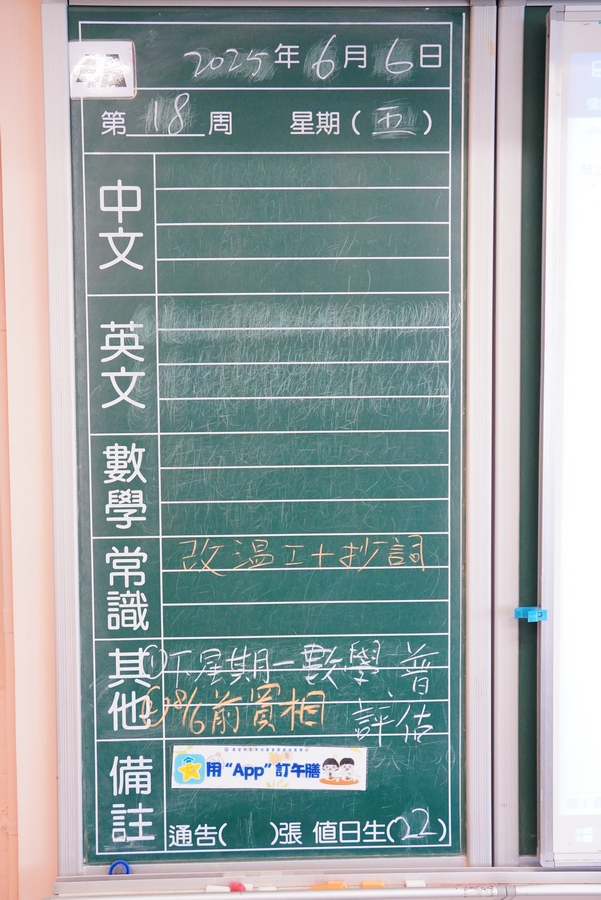 2025年6月6日
第18周 星期(五)
中文
英文
數學
常識 改溫工+抄詞
其他 ①下星期一數學、普評估
②18/6前買相
備註 用“App”訂午膳
通告( )張 值日生(22)